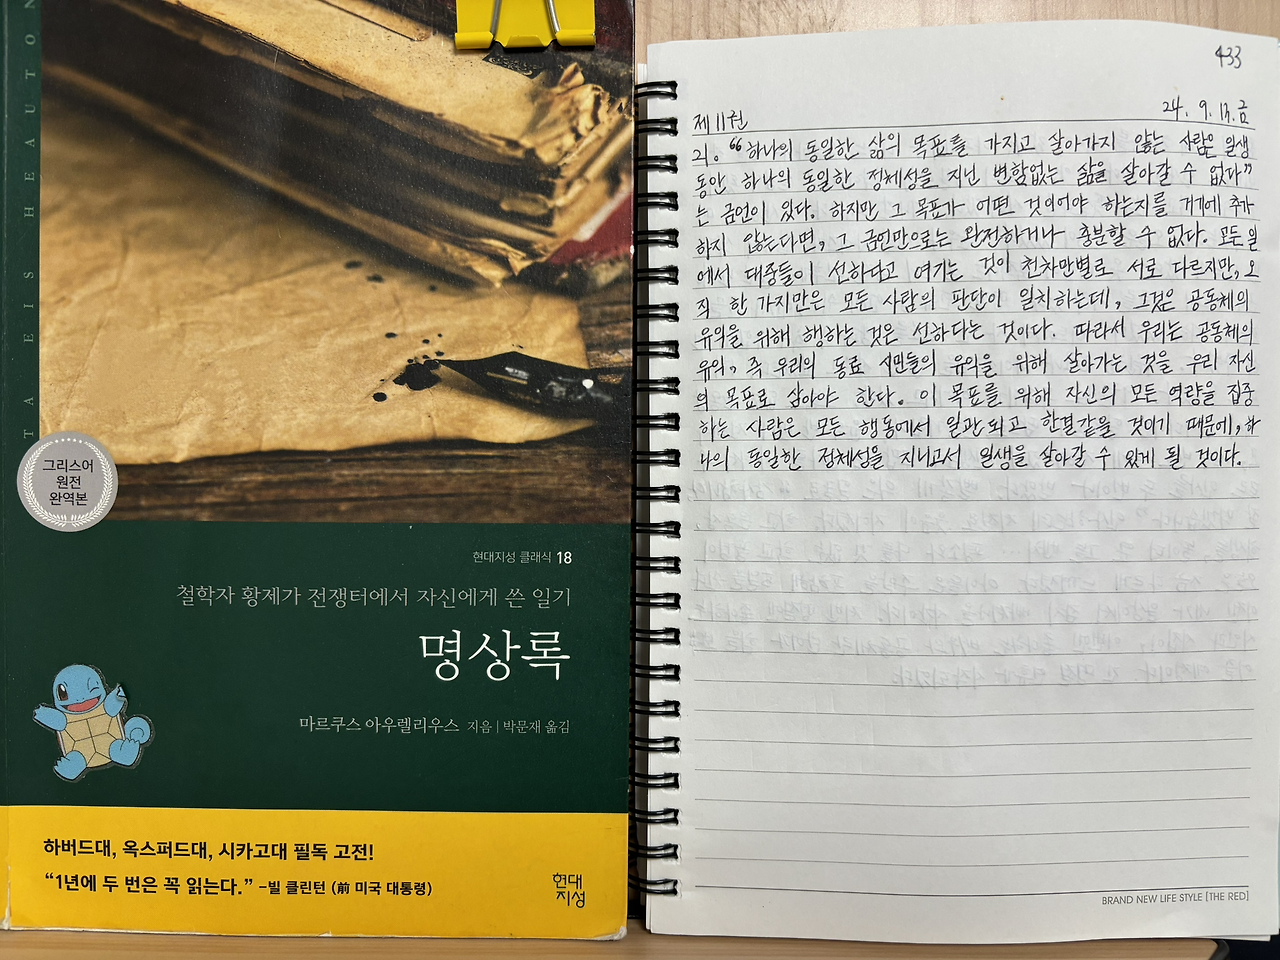 TA EIS HEAUTON
그리스어
원전
완역본
현대지성 클래식 18
철학자 황제가 전쟁터에서 자신에게 쓴 일기
명상록
마르쿠스 아우렐리우스 지음 | 박문재 옮김
하버드대, 옥스퍼드대, 시카고대 필독 고전!
“1년에 두 번은 꼭 읽는다.” –빌 클린턴 (前 미국 대통령)
현대
지성
433
제11권
24. 9. 13. 금
21. “하나의 동일한 삶의 목표를 가지고 살아가지 않는 사람은 일생
동안 하나의 동일한 정체성을 지닌 변함없는 삶을 살아갈 수 없다”
는 금언이 있다. 하지만 그 목표가 어떤 것이어야 하는지를 거기에 추가
하지 않는다면, 그 금언만으로는 완전하거나 충분할 수 없다. 모든 일
에서 대중들이 선하다고 여기는 것이 천차만별로 서로 다르지만, 오
직 한 가지만은 모든 사람의 판단이 일치하는데, 그것은 공동체의
유익을 위해 행하는 것은 선하다는 것이다. 따라서 우리는 공동체의
유익, 즉 우리의 동료 시민들의 유익을 위해 살아가는 것을 우리 자신
의 목표로 삼아야 한다. 이 목표를 위해 자신의 모든 역량을 집중
하는 사람은 모든 행동에서 일관되고 한결같을 것이기 때문에, 하
나의 동일한 정체성을 지니고서 일생을 살아갈 수 있게 될 것이다.
BRAND NEW LIFE STYLE [THE RED]